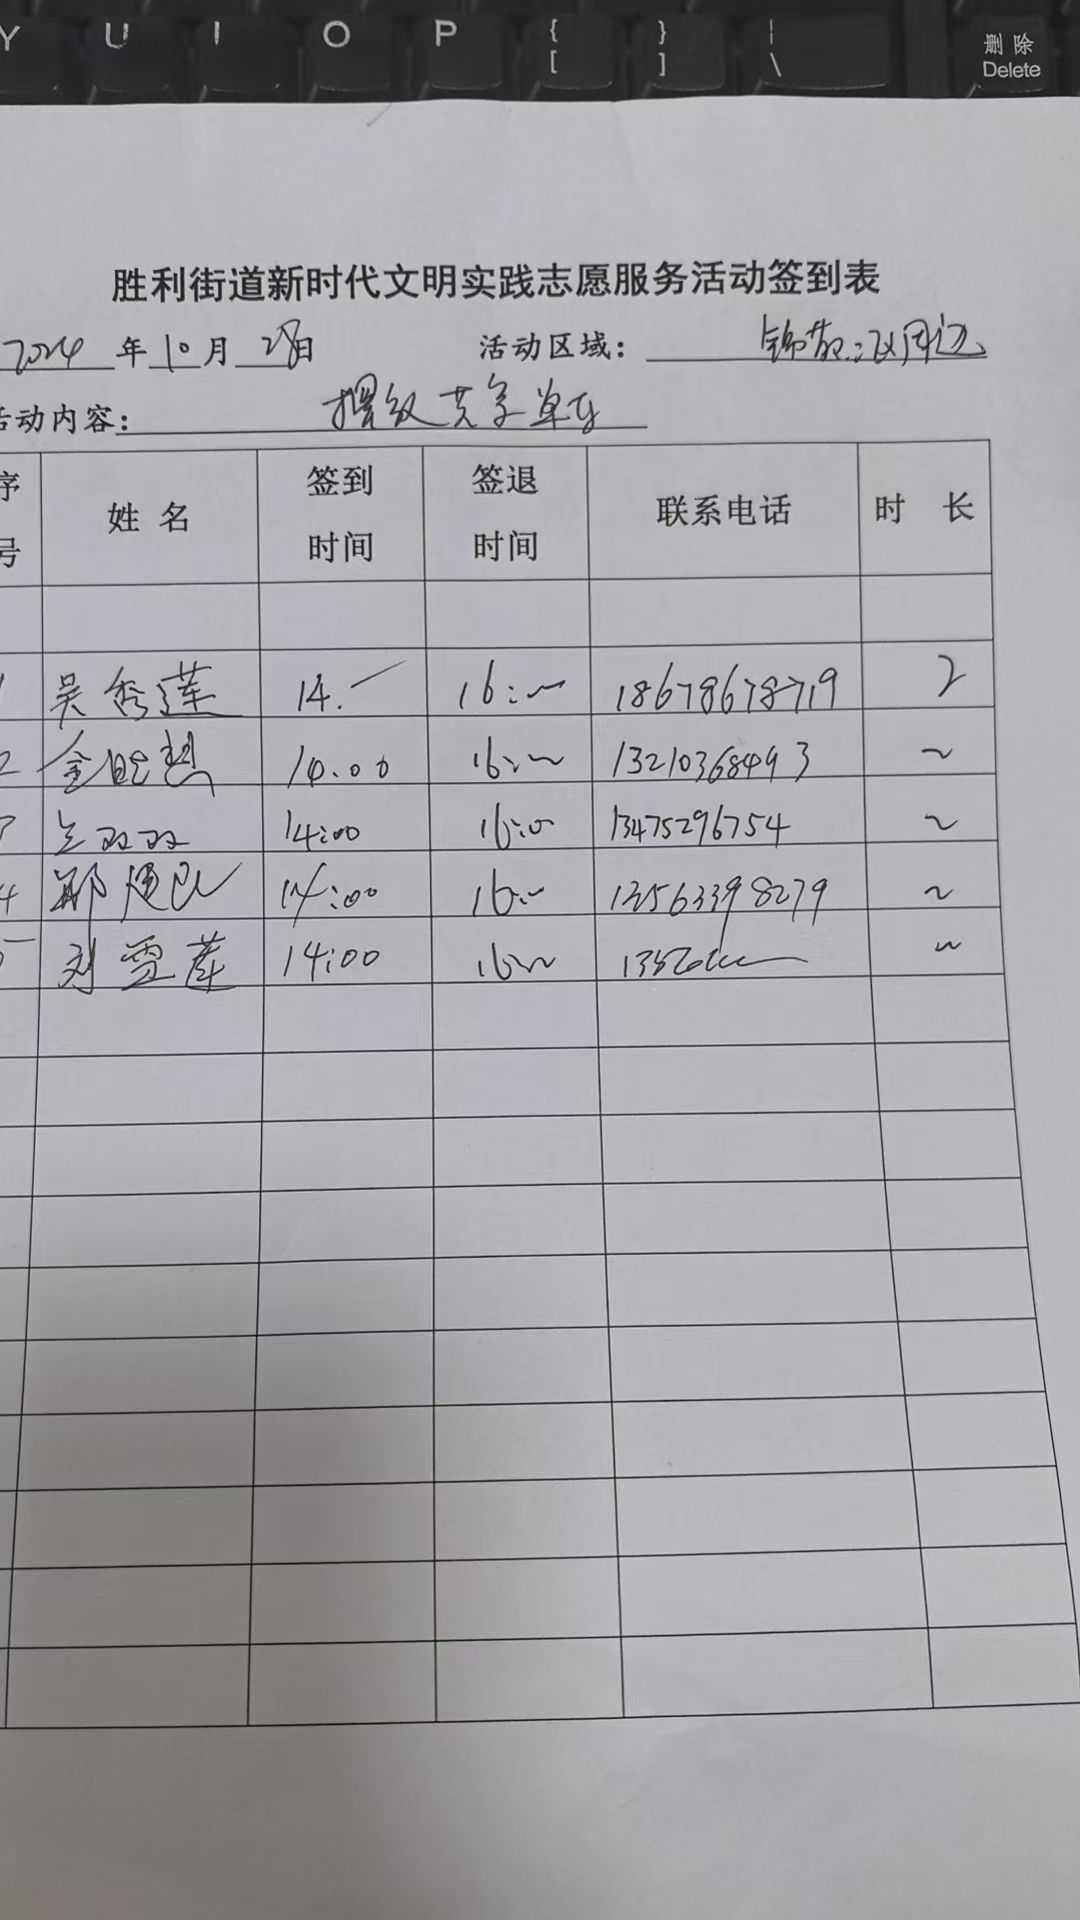 Y U I O P { [ } ] | \ 删除 Delete
胜利街道新时代文明实践志愿服务活动签到表
2024 年 10 月 28 日 活动区域: 周边
活动内容: 共享单车
序号 姓名 签到时间 签退时间 联系电话 时长
1 吴秀莲 14. 16: 18678678719 2
2 金 14.00 16: 13210368493 ~
3 双双 14:00 16:0 13475296754 ~
4 邢建 14:00 16: 13563398279 ~
5 刘雪莲 14:00 16 ~